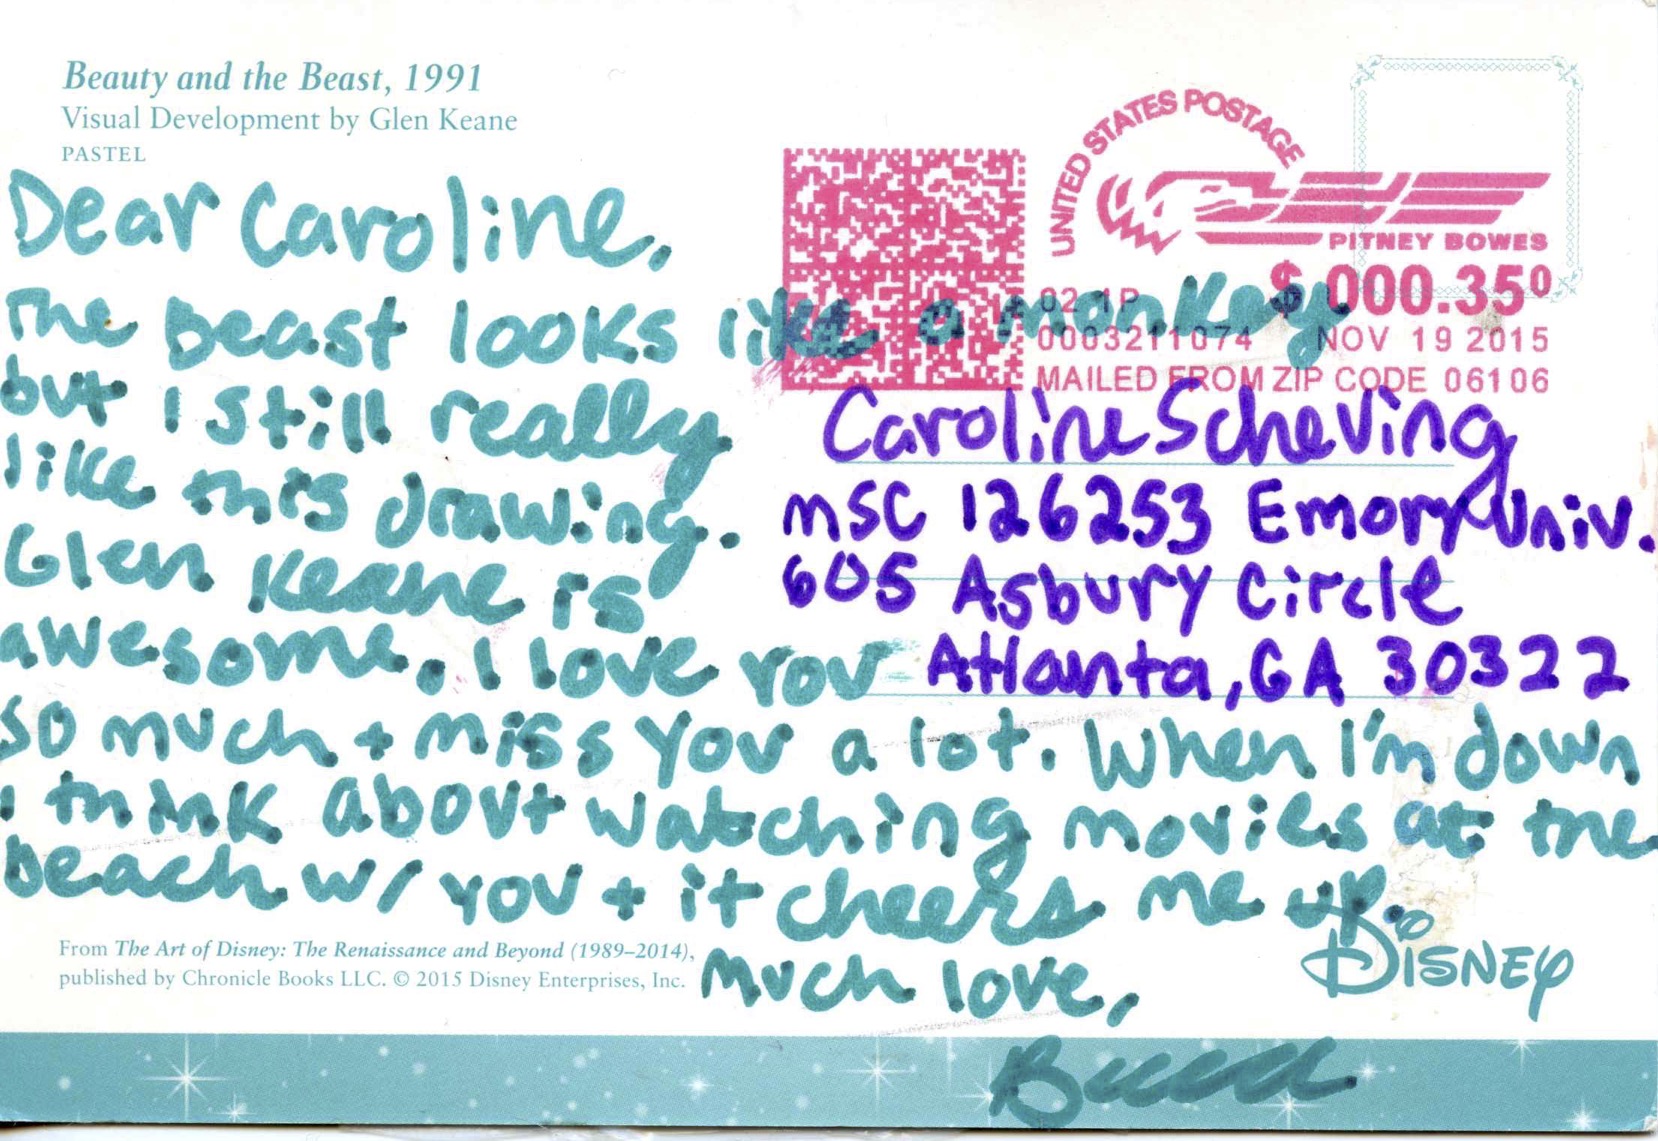 Beauty and the Beast, 1991
Visual Development by Glen Keane
PASTEL
UNITED STATES POSTAGE
PITNEY BOWES
02 1P
$ 000.35⁰
0003211074 NOV 19 2015
MAILED FROM ZIP CODE 06106
Dear Caroline,
The Beast looks like a monkey
but I still really
like this drawing.
Glen Keane is
awesome. I love you
so much + miss you a lot. When I'm down
I think about watching movies at the
beach w/ you + it cheers me up.
Much love,
Caroline Scheving
MSC 126253 Emory Univ.
605 Asbury Circle
Atlanta, GA 30322
From The Art of Disney: The Renaissance and Beyond (1989–2014),
published by Chronicle Books LLC. © 2015 Disney Enterprises, Inc.
DISNEY